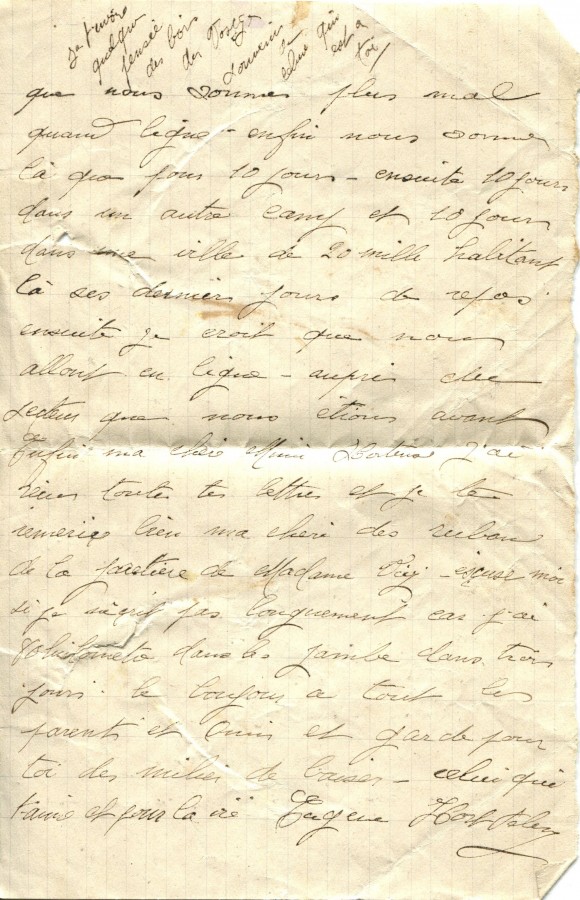 je t'envoie
quelque
pensée
des bois
des Vosges
souvenir
à
celui qui
est a
toi
que nous sommes plus mal
quand ligne - enfin nous somme
là que pour 10 jours - ensuite 10 jours
dans un autre camp et 10 jours
dans une ville de 20 mille habitant
là ses dernier jours de repos
ensuite je croit que nous
allont en ligne - aupris du
secteur que nous étions avant
Enfin ma chère Mimi Hortense j'ai
reçus toute tes lettres et je te
remercie bien ma cheri des ruban
de la jaretière de Madame - esçuse moi
si je n'ecrit pas longuement car j'ai
80 kilometre dans les jambe dans trois
jours. le bonjour a tout les
parents et amis et garde pour
toi des milies de baiser - celui qui
t'aime et pour la vie Eugene